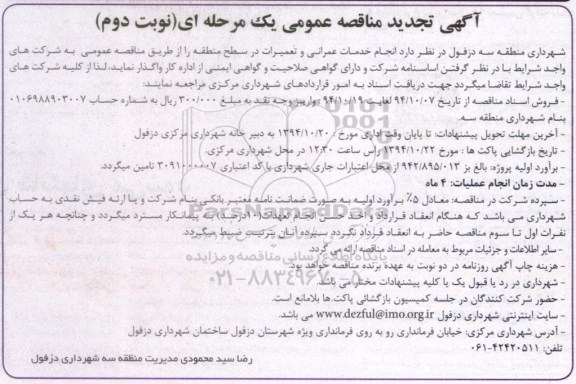 آگهی تجدید مناقصه عمومی یک مرحله ای(نوبت دوم)
شهرداری منطقه سه دزفول در نظر دارد انجام خدمات عمرانی و تعمیرات در سطح منطقه را از طریق مناقصه عمومی به شرکت های
واجد شرایط با در نظر گرفتن اساسنامه شرکت و دارای گواهی صلاحیت و گواهی ایمنی از اداره کار واگذار نماید، لذا از کلیه شرکت های
واجد شرایط تقاضا میگردد جهت دریافت اسناد به امور قراردادهای شهرداری مرکزی مراجعه نمایند:
- فروش اسناد مناقصه از تاریخ ۹۴/۱۰/۰۷ لغایت ۹۴/۱۰/۱۹ واریز وجه نقد به مبلغ ۳۰۰/۰۰۰ ریال به شماره حساب ۰۱۰۶۹۸۸۹۰۳۰۰۷
بنام شهرداری منطقه سه.
- آخرین مهلت تحویل پیشنهادات: تا پایان وقت اداری مورخ ۱۳۹۴/۱۰/۲۰ به دبیر خانه شهرداری مرکزی دزفول
- تاریخ بازگشایی پاکت ها : مورخ ۱۳۹۴/۱۰/۲۲ رأس ساعت ۱۲:۳۰ در محل شهرداری مرکزی.
- برآورد اولیه پروژه: بالغ بر ۹۴۲/۸۹۵/۰۱۳ از محل اعتبارات جاری شهرداری با کد اعتباری ۳۰۹۱۰۰۰۰۰۷ تامین میگردد.
- مدت زمان انجام عملیات: ۴ ماه
- سپرده شرکت در مناقصه: معادل ۵٪ برآورد اولیه به صورت ضمانت نامه معتبر بانکی بنام شرکت و یا ارئه فیش نقدی به حساب
شهرداری می باشد که هنگام انعقاد قرارداد و اخذ تعهدات پیمانکار مسترد میگردد و چنانچه هر یک از
نفرات اول تا سوم مناقصه حاضر به انعقاد قرارداد نگردد سپرده آنان بترتیب ضبط میگردد.
- سایر اطلاعات و جزئیات مربوط به معامله در اسناد مناقصه ارائه می گردد.
- هزینه چاپ آگهی روزنامه در دو نوبت به عهده برنده مناقصه خواهد بود.
- شهرداری در رد یا قبول یک یا کلیه پیشنهادات مختار می باشد.
- حضور شرکت کنندگان در جلسه کمیسیون بازگشائی پاکت ها بلامانع است.
- سایت اینترنتی شهرداری دزفول www.dezful@imo.org.ir می باشد.
- آدرس شهرداری مرکزی: خیابان فرمانداری رو به روی فرمانداری ویژه شهرستان دزفول ساختمان شهرداری دزفول
تلفن: ۰۶۱-۴۲۴۲۰۵۱۱
رضا سید محمودی مدیریت منطقه سه شهرداری دزفول
پایگاه اطلاع رسانی مناقصه و مزایده
۰۲۱-۸۸۳۴۹۶۷۰-۵